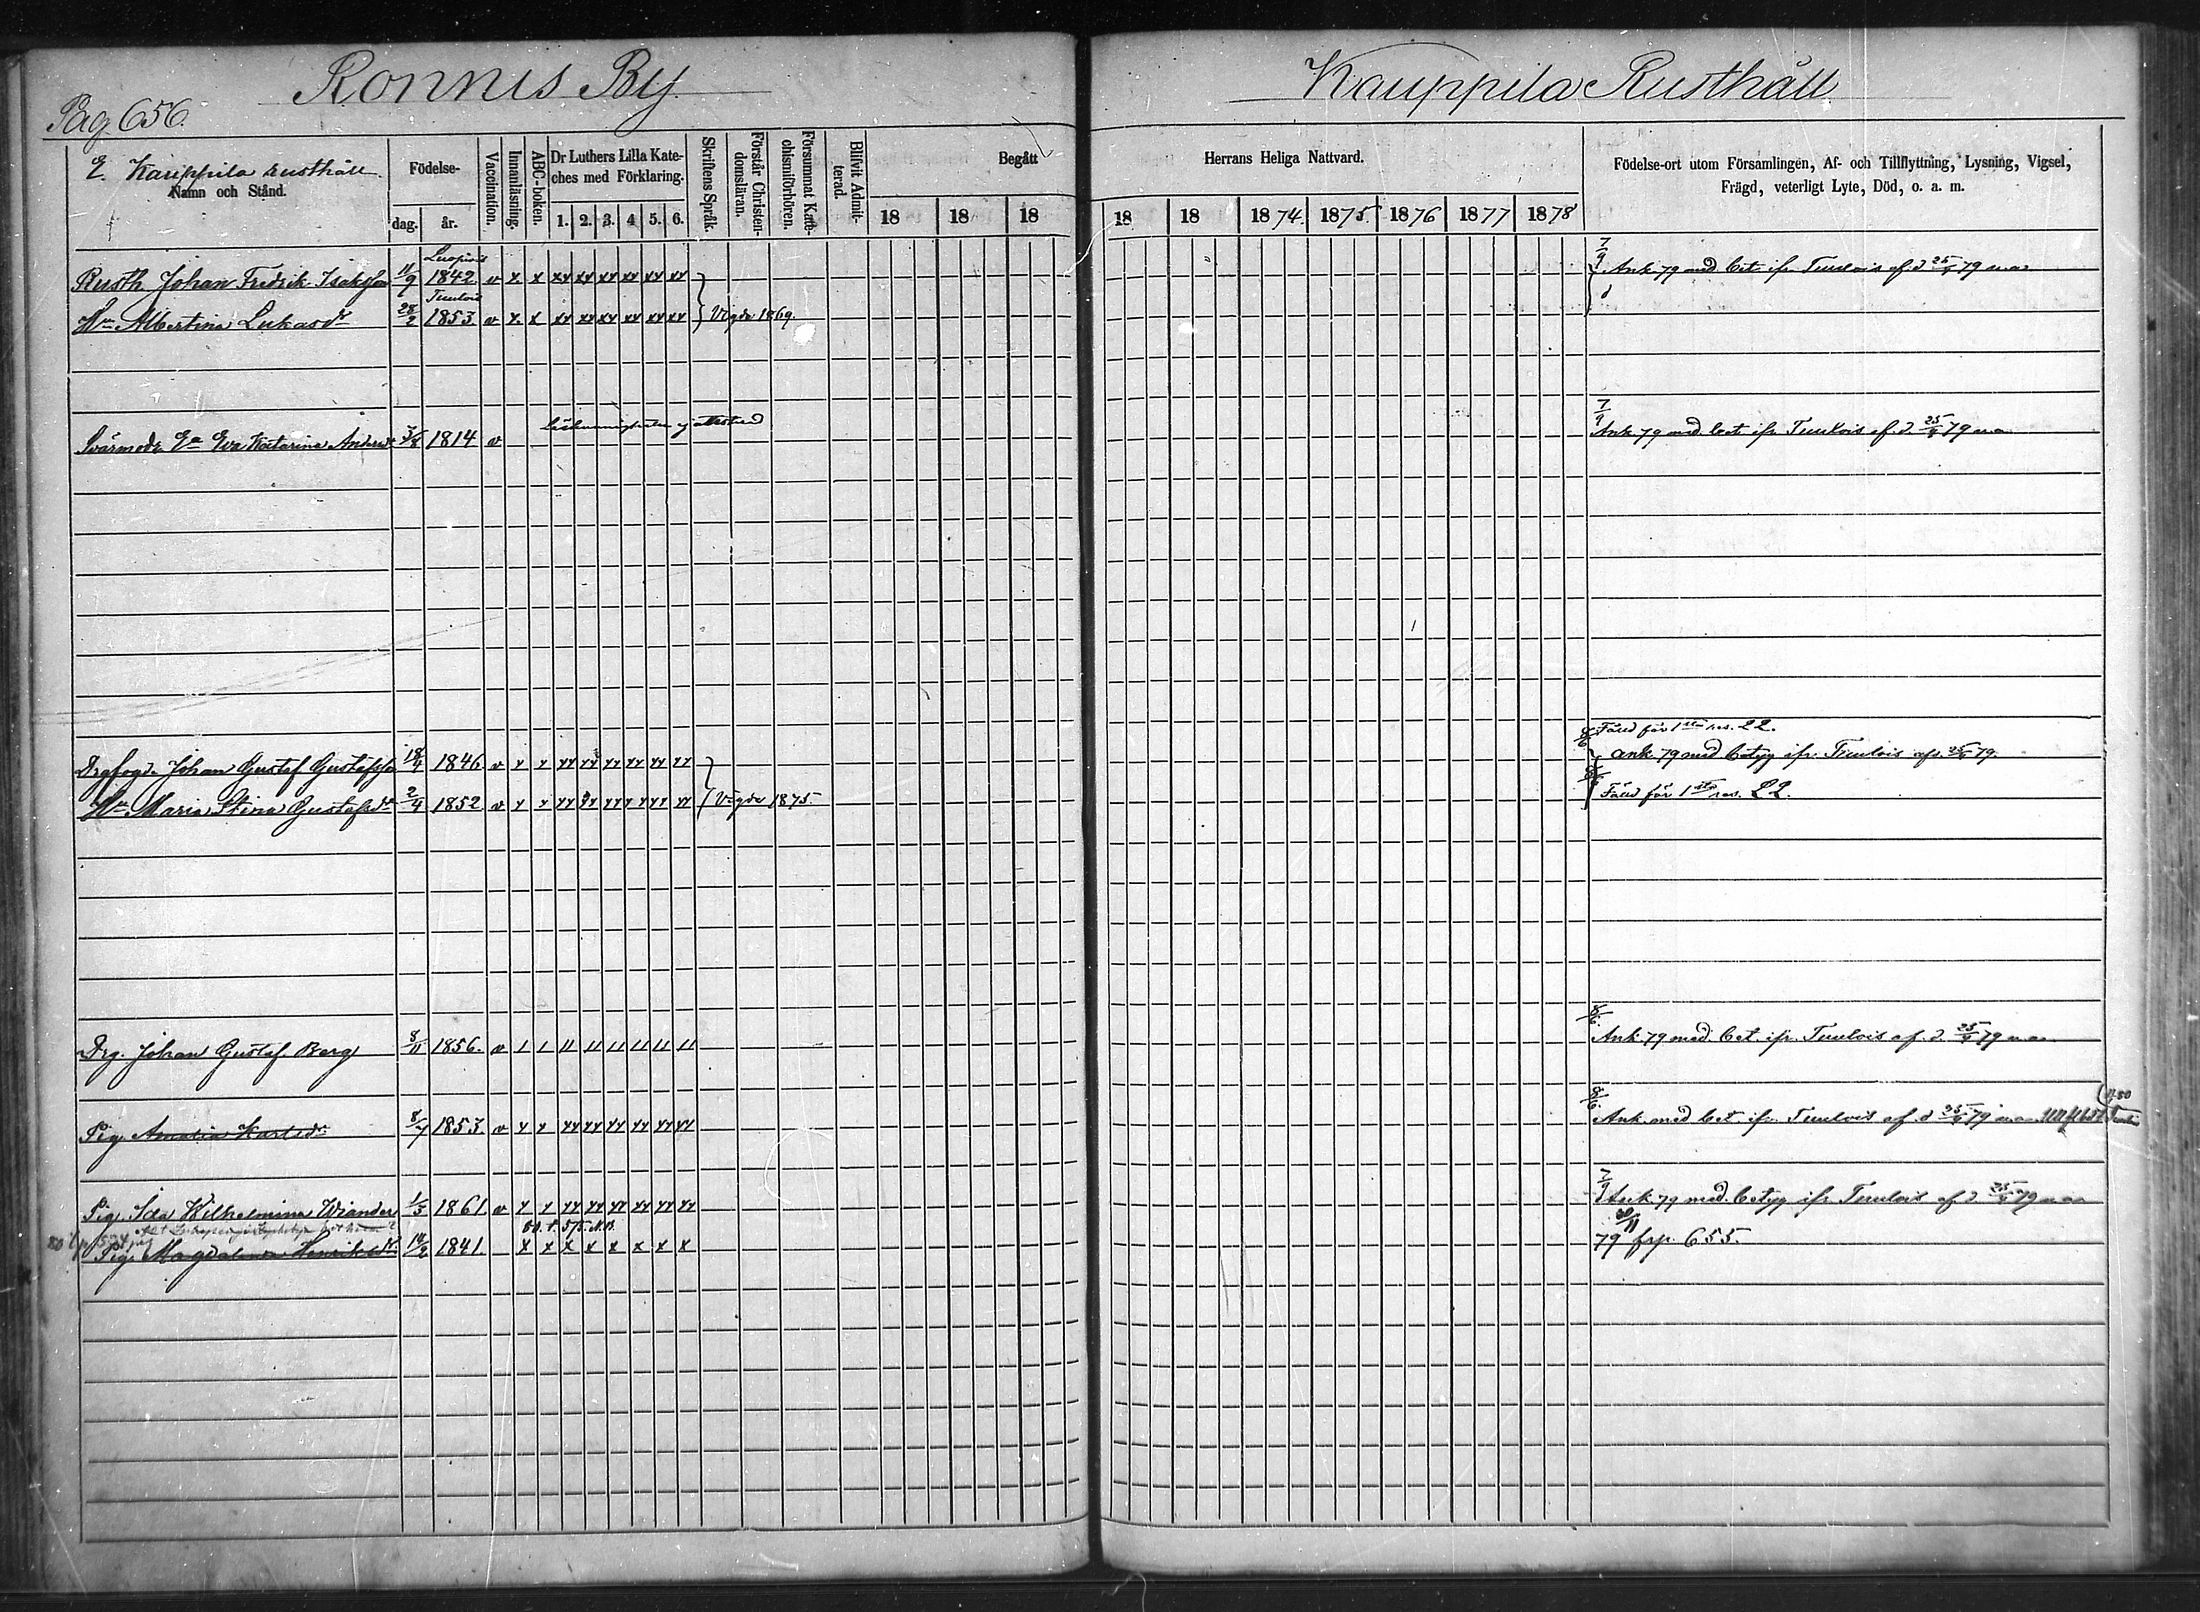 Ronnis By.
Kauppila Rusthåll
Pag 656.
E. Kauppila rusthåll.
Namn och Stånd.
Födelse-
dag.
år.
Vaccination.
Innanläsning.
ABC-boken.
Dr Luthers Lilla Kate-
ches med Förklaring.
1. 2. 3. 4 5. 6.
Skriftens Språk.
Förstår Christen-
domsläran.
Försummat Kate-
chismiförhören.
Blifvit Admit-
terad.
Begått
18 18 18
Herrans Heliga Nattvard.
18 18 1874. 1875. 1876 1877 1878
Födelse-ort utom Församlingen, Af- och Tillflyttning, Lysning, Vigsel,
Frägd, veterligt Lyte, Död, o. a. m.
Luopiois
Rusth. Johan Fredrik Isaksson 11/9 1842 v x x xx xx xx xx xx xx
7/9 Ank. 79 med bet. ifr. Tuulois af d. 25/9 79
Tuulois
Hu Albertina Lukasdr 28/2 1853. v x x xx xx xx xx xx xx Vigde 1869.
Svärmodr Ea Eva Katarina Andersdr 1814 v
7/9 Ank. 79 med bet. ifr. Tuulois af d. 25/9 79
Fäled för 1sta res. 22.
Drgfogd. Johan Gustaf Gustafsson 18/4 1846. v x x xx xx xx xx xx xx
8/6 ank. 79 med betyg ifr. Tuulois 79.
Hu Maria Stina Gustafsdr 2/4 1852 v x x xx xx xx xx xx xx Vigde 1875.
Fäled för 1sta res. 22.
Drg. Johan Gustaf Berg 8/11 1856. v 1 1 11 11 11 11 11 11
8/6. Ank. 79 med. bet. ifr. Tuulois af. d. 25/9 79
Pig. Amalia Karlsdr 8/7 1853. v x x xx xx xx xx xx xx
8/6. Ank. med bet. ifr. Tuulois af d 25/9 79
Pig. Ida Wilhelmina Wiander 1/5 1861. v x x xx xx xx xx xx xx
7/9 Ank. 79 med. betyg ifr Tuulois af d 25/9 79
Pig. Magdalena Henriksdr 14/2 1841. x x x x x x x x
30/11 79 frp. 655.